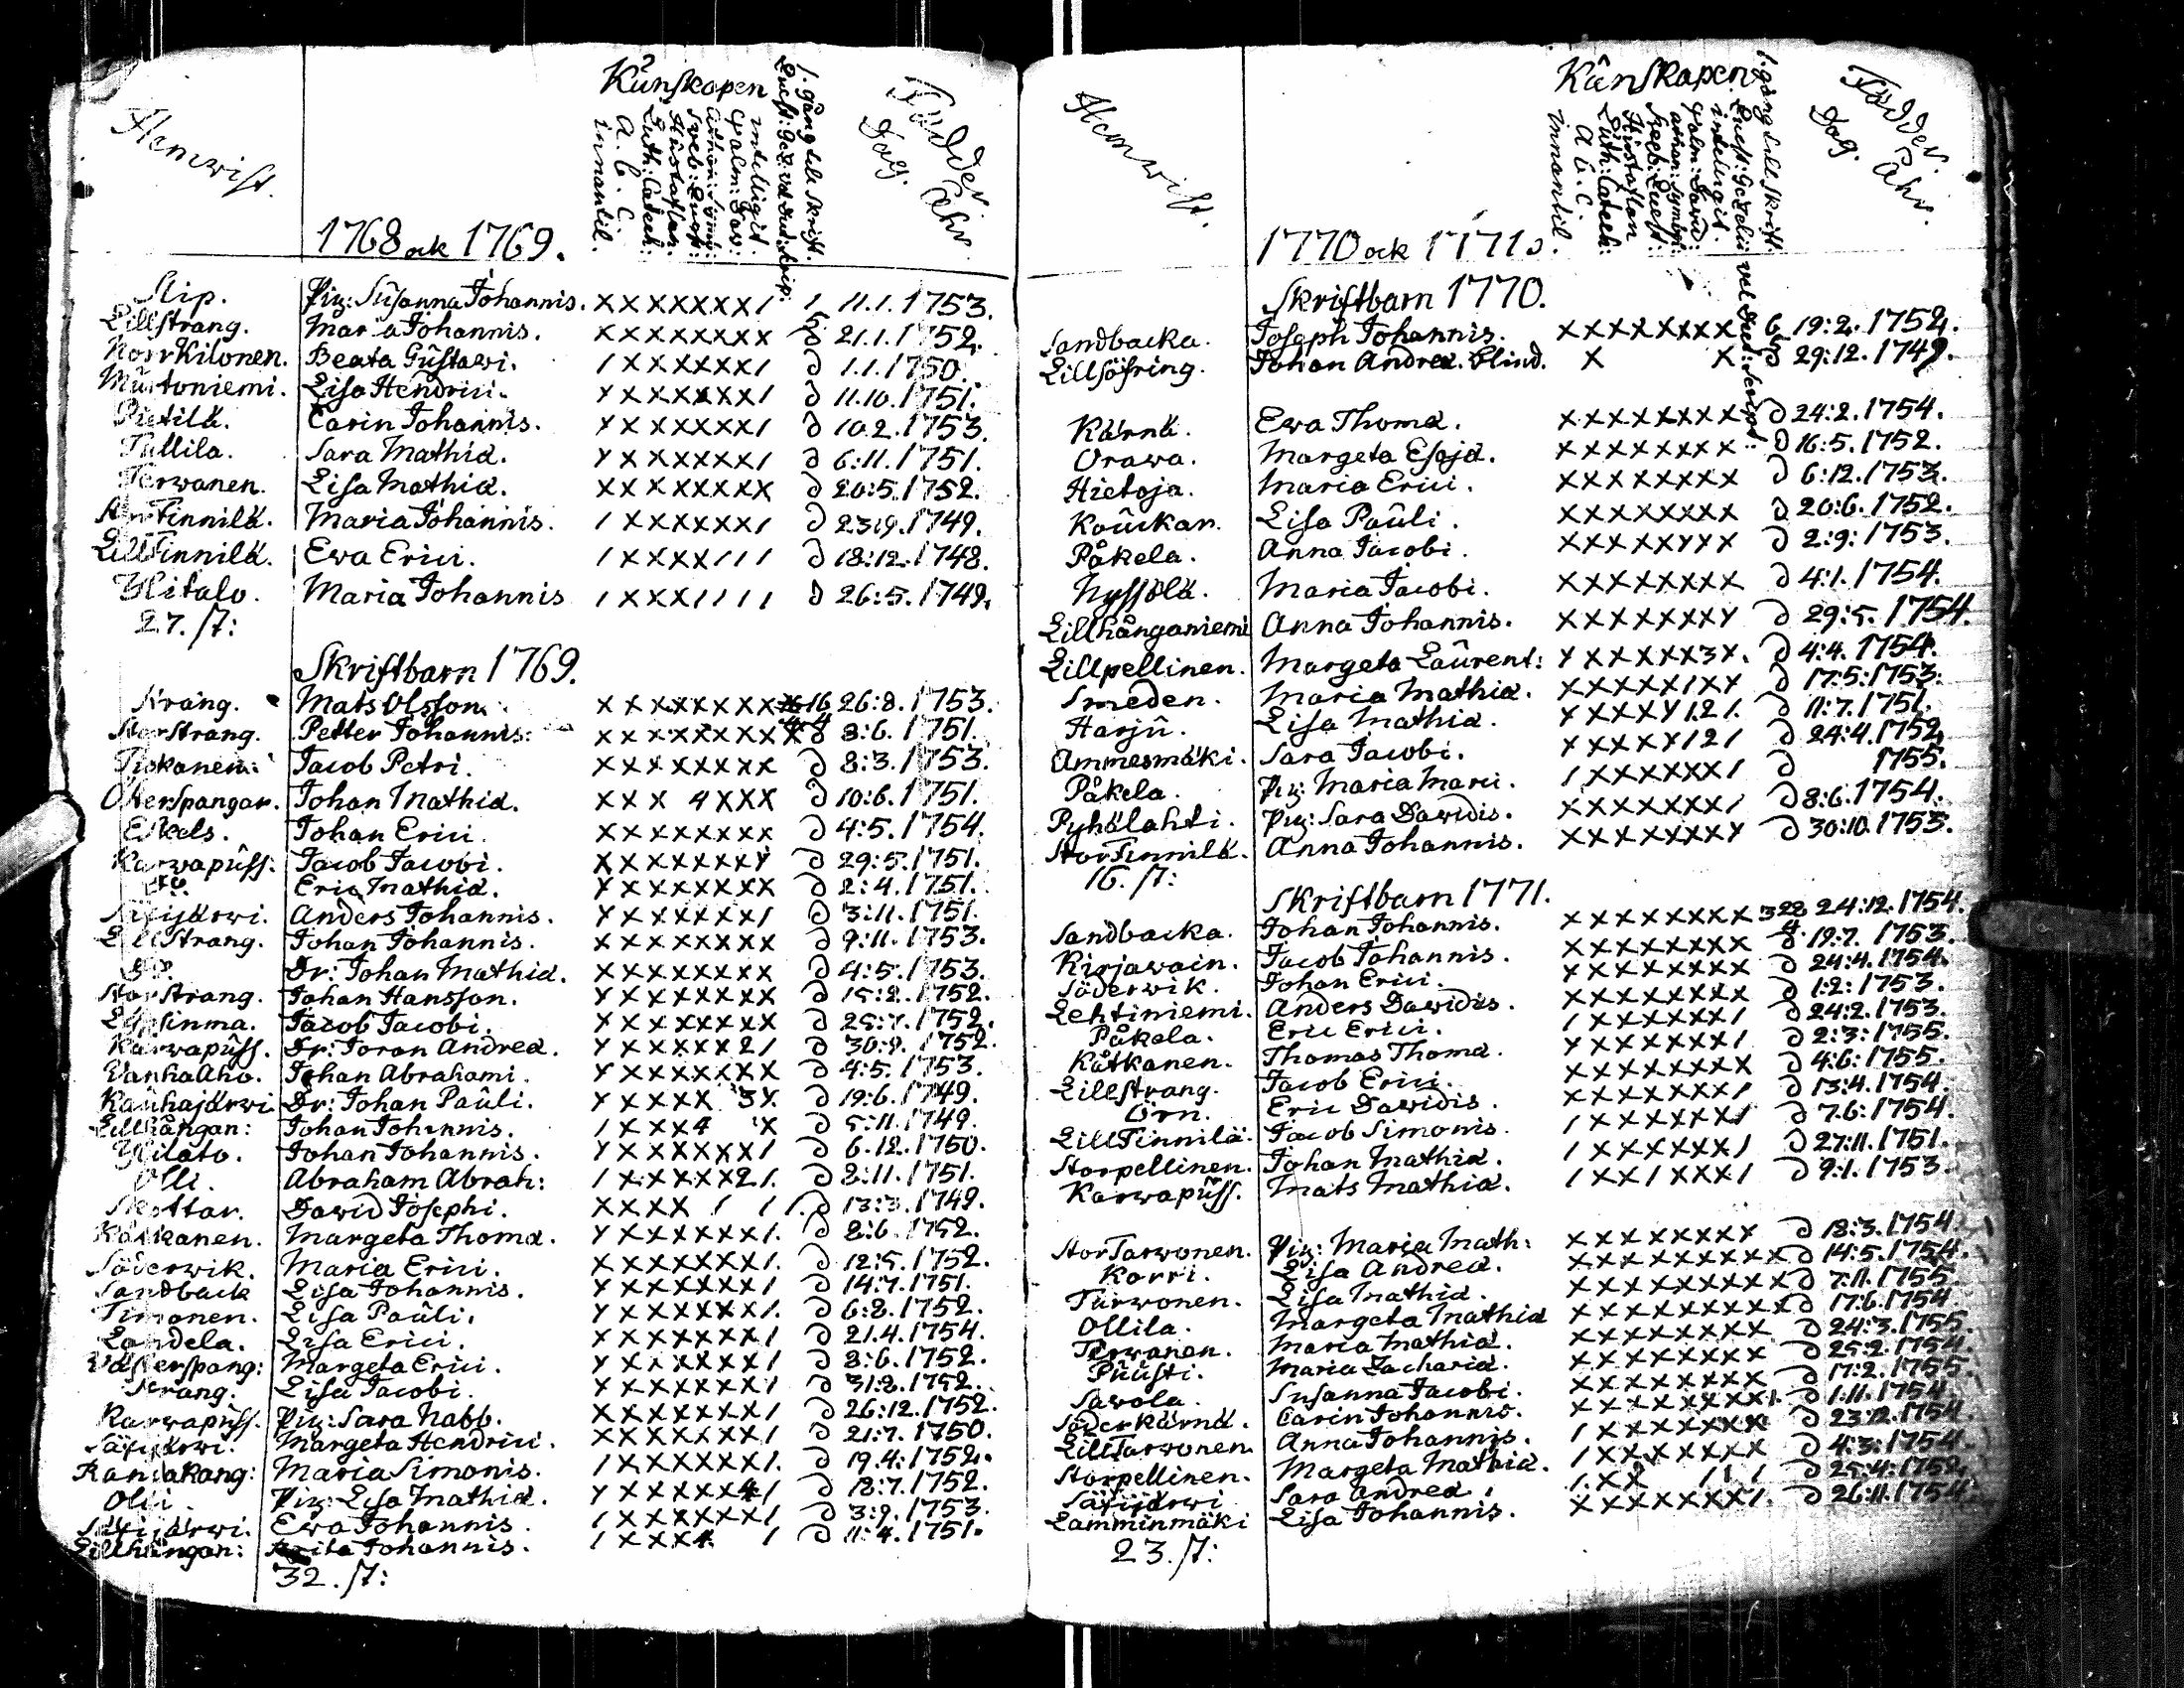 Hemwist.
Kunskapen
innantil.
A. b. c.
Luth: Catech:
Hustaflan.
Sveb: Quæst:
Athan: Symb:
Psalm: Dav:
intelligit.
Quæst: Gez: vel Dict: Scrip:
1. gång till skrift.
Födder
Dag. Åhr.
1768 ock 1769.
Slip. Pig: Susanna Johannis. x x x x x x x 1 1 11.1.1753.
Lillstrang. Maria Johannis. x x x x x x x x 5 d 21.1.1752.
NorrKilonen. Beata Gustawi. 1 x x x x x x 1 d 1.1.1750.
Murtoniemi. Lisa Hendrici. x x x x x x x 1 d 11.10.1751.
Pietilä. Carin Johannis. x x x x x x x 1 d 10.2.1753.
Tullila. Sara Mathiæ. x x x x x x x 1 d 6:11.1751.
Terwanen. Lisa Mathiæ. x x x x x x x x d 20:5.1752.
Finnilä. Maria Johannis. 1 x x x x x x 1 d 23:9.1749.
LillFinnilä. Ewa Erici. 1 x x x x 1 1 1 d 18:12.1748.
Ylitalo. Maria Johannis 1 x x x 1 1 1 1 d 26:5.1749.
27. st:
Skriftbarn 1769.
Strang. Mats Olsson. x x x x x x x x 16 26:8.1753.
StorStrang. Petter Johannis: x x x x x x x x 8:6.1751.
Tiokanen. Jacob Petri. x x x x x x x x d 8:3.1753.
Österspangar. Johan Mathiæ. x x x 4 x x x d 10:6.1751.
Eskels. Johan Erici. x x x x x x x x d 4:5.1754.
Karwapuss: Jacob Jacobi. x x x x x x x x d 29:5.1751.
do. Eric Mathiæ. x x x x x x x x d 2:4.1751.
Säxijärwi. Anders Johannis. x x x x x x x 1 d 3:11.1751.
LillStrang. Johan Johannis. x x x x x x x x d 9:11.1753.
do. Dr: Johan Mathiæ. x x x x x x x x d 4:5.1753.
StorStrang. Johan Hansson. x x x x x x x x d 15:2.1752.
Jacob Jacobi. x x x x x x x x d 25:7.1752.
Karwapuss. Dr: Joran Andreæ. x x x x x x 2 1 d 30:9.1752.
WanhaAho. Johan Abrahami. x x x x x x x x d 4:5.1753.
Kauhajärwi Dr: Johan Pauli. x x x x x 3 x d 19:6.1749.
Lillhångan: Johan Johannis. 1 x x x 4 x d 5:11.1749.
Ylitalo. Johan Johannis. x x x x x x x 1 d 6.12.1750.
Olli. Abraham Abrah: 1 x x x x x 2 1. d 8:11.1751.
Skottar. Dawid Josephi. x x x x 1 1 1. d 13:3.1749.
Kätkanen. Margeta Thomæ. x x x x x x x 1. d 8:6.1752.
Söderwik. Maria Erici. x x x x x x x 1. d 12:5.1752.
Sandback Lisa Johannis. x x x x x x x 1 d 14:7.1751.
Timonen. Lisa Pauli. x x x x x x x 1. d 6:8.1752.
Landela. Lisa Erici. x x x x x x x 1 d 21.4.1754.
Wästerspang: Margeta Erici. x x x x x x x 1 d 8:6.1752.
Strang. Lisa Jacobi. x x x x x x x 1 d 31:8.1752.
Karwapuss. Pig: Sara Nabb. x x x x x x x 1 d 26:12.1752.
Säxijärwi. Margeta Hendrici. x x x x x x x 1 d 21:7.1750.
Maria Simonis. 1 x x x x x x 1. d 19.4:1752.
Olli. Pig: Lisa Mathiæ. x x x x x x 4 1 d 18:7.1752.
Säxijärwi. Ewa Johannis. 1 x x x x x x 1 d 3:9.1753.
Lillhångan: Brita Johannis. 1 x x x 4. 1 d 11:4.1751.
32. st:
Hemwist.
Kunskapen
innantil.
A b c.
Luth: Catech:
Hustaflan
Sveb: Quæst:
Athan: Symbol:
Psalm: David:
intelligit.
Quæst: Gezelii vel Dict: Script:
1. gång till skrift.
Födder
Dag. Åhr.
1770 ock 1771.
Skriftbarn 1770.
Sandbacka. Joseph Johannis. x x x x x x x x 19:2.1752.
Lillsöfring. Johan Andreæ. blind. x x d 29:12.1749.
Kärnä. Ewa Thomæ. x x x x x x x x d 24:2.1754.
Orawa. Margeta Esajæ. x x x x x x x x d 16:5.1752.
Hietoja. Maria Erici. x x x x x x x x d 6:12.1753.
Kouckar. Lisa Pauli. x x x x x x x x d 20:6.1752.
Påkela. Anna Jacobi. x x x x x x x x d 2:9:1753.
Nyssölä. Maria Jacobi. x x x x x x x x d 4:1.1754.
Lillhånganiemi Anna Johannis. x x x x x x x x d 29:5.1754.
Lillpellinen. Margeta Laurent: x x x x x x 3 x. d 4:4.1754.
Smeden. Maria Mathiæ. x x x x x 1 x x d 17:5:1753.
Harju. Lisa Mathiæ. x x x x x 1. 2 1. d 11:7.1751.
Ammesmäki. Sara Jacobi. x x x x x 1 2 1 d 24:4.1752.
Påkela. Pig: Maria Marci. 1 x x x x x x 1 d 1755.
Pyhälahti. Pig: Sara Dawidis. x x x x x x x 1 d 8:6.1754.
StorFinnilä. Anna Johannis. x x x x x x x x d 30:10.1753.
16. st:
Skriftbarn 1771.
Sandbacka. Johan Johannis. x x x x x x x x 24:12.1754.
Kirjawain. Jacob Johannis. x x x x x x x x d 19:7.1753.
Söderwik. Johan Erici. x x x x x x x x d 24:4.1754.
Lehtiniemi. Anders Dawidis. x x x x x x x x d 1:2:1753.
Påkela. Eric Erici. 1 x x x x x x 1 d 24:2.1753.
Kätkanen. Thomas Thomæ. x x x x x x x 1 d 2:3:1755.
Lillstrang. Jacob Erici. x x x x x x x x d 4:6:1755.
Örn. Eric Dawidis. x x x x x x x 1 d 13:4.1754.
LillFinnilä. Jacob Simonis. 1 x x x x x x 1 d 7.6:1754.
Storpellinen. Johan Mathiæ. 1 x x x x x x 1 d 27:11.1751.
Karwapuss. Mats Mathiæ. 1 x x 1 x x x 1 d 9:1.1753.
StorTarwonen. Pig: Maria Math: x x x x x x x x d 18:3.1754.
Korri. Lisa Andreæ. x x x x x x x x x d 14:5.1754.
Turwonen. Lisa Mathiæ. x x x x x x x x x d 7:11.1755.
Ollila. Margeta Mathiæ x x x x x x x x x d 17:6.1754
Terwanen. Maria Mathiæ. x x x x x x x x d 24:3.1755.
Puusti. Maria Zachariæ. x x x x x x x x d 25:2.1754.
Sawola. Susanna Jacobi. x x x x x x x x d 17:2.1755.
Söderkärnä. Carin Johannis. x x x x x x x x 1. d 1:11.1754.
LillTarwonen. Anna Johannis. 1 x x x x x x x d 23:12.1754.
Storpellinen. Margeta Mathiæ. 1 x x x x x x x d 4:3:1754.
Säxijärwi Sara Andreæ. 1. x x 1 1 1 d 25:4:1752.
Lamminmäki Lisa Johannis. x x x x x x x 1. d 26:11.1754.
23. st: